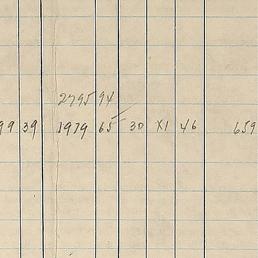 2795 94
99 39 1979 65 30 X1 46 659